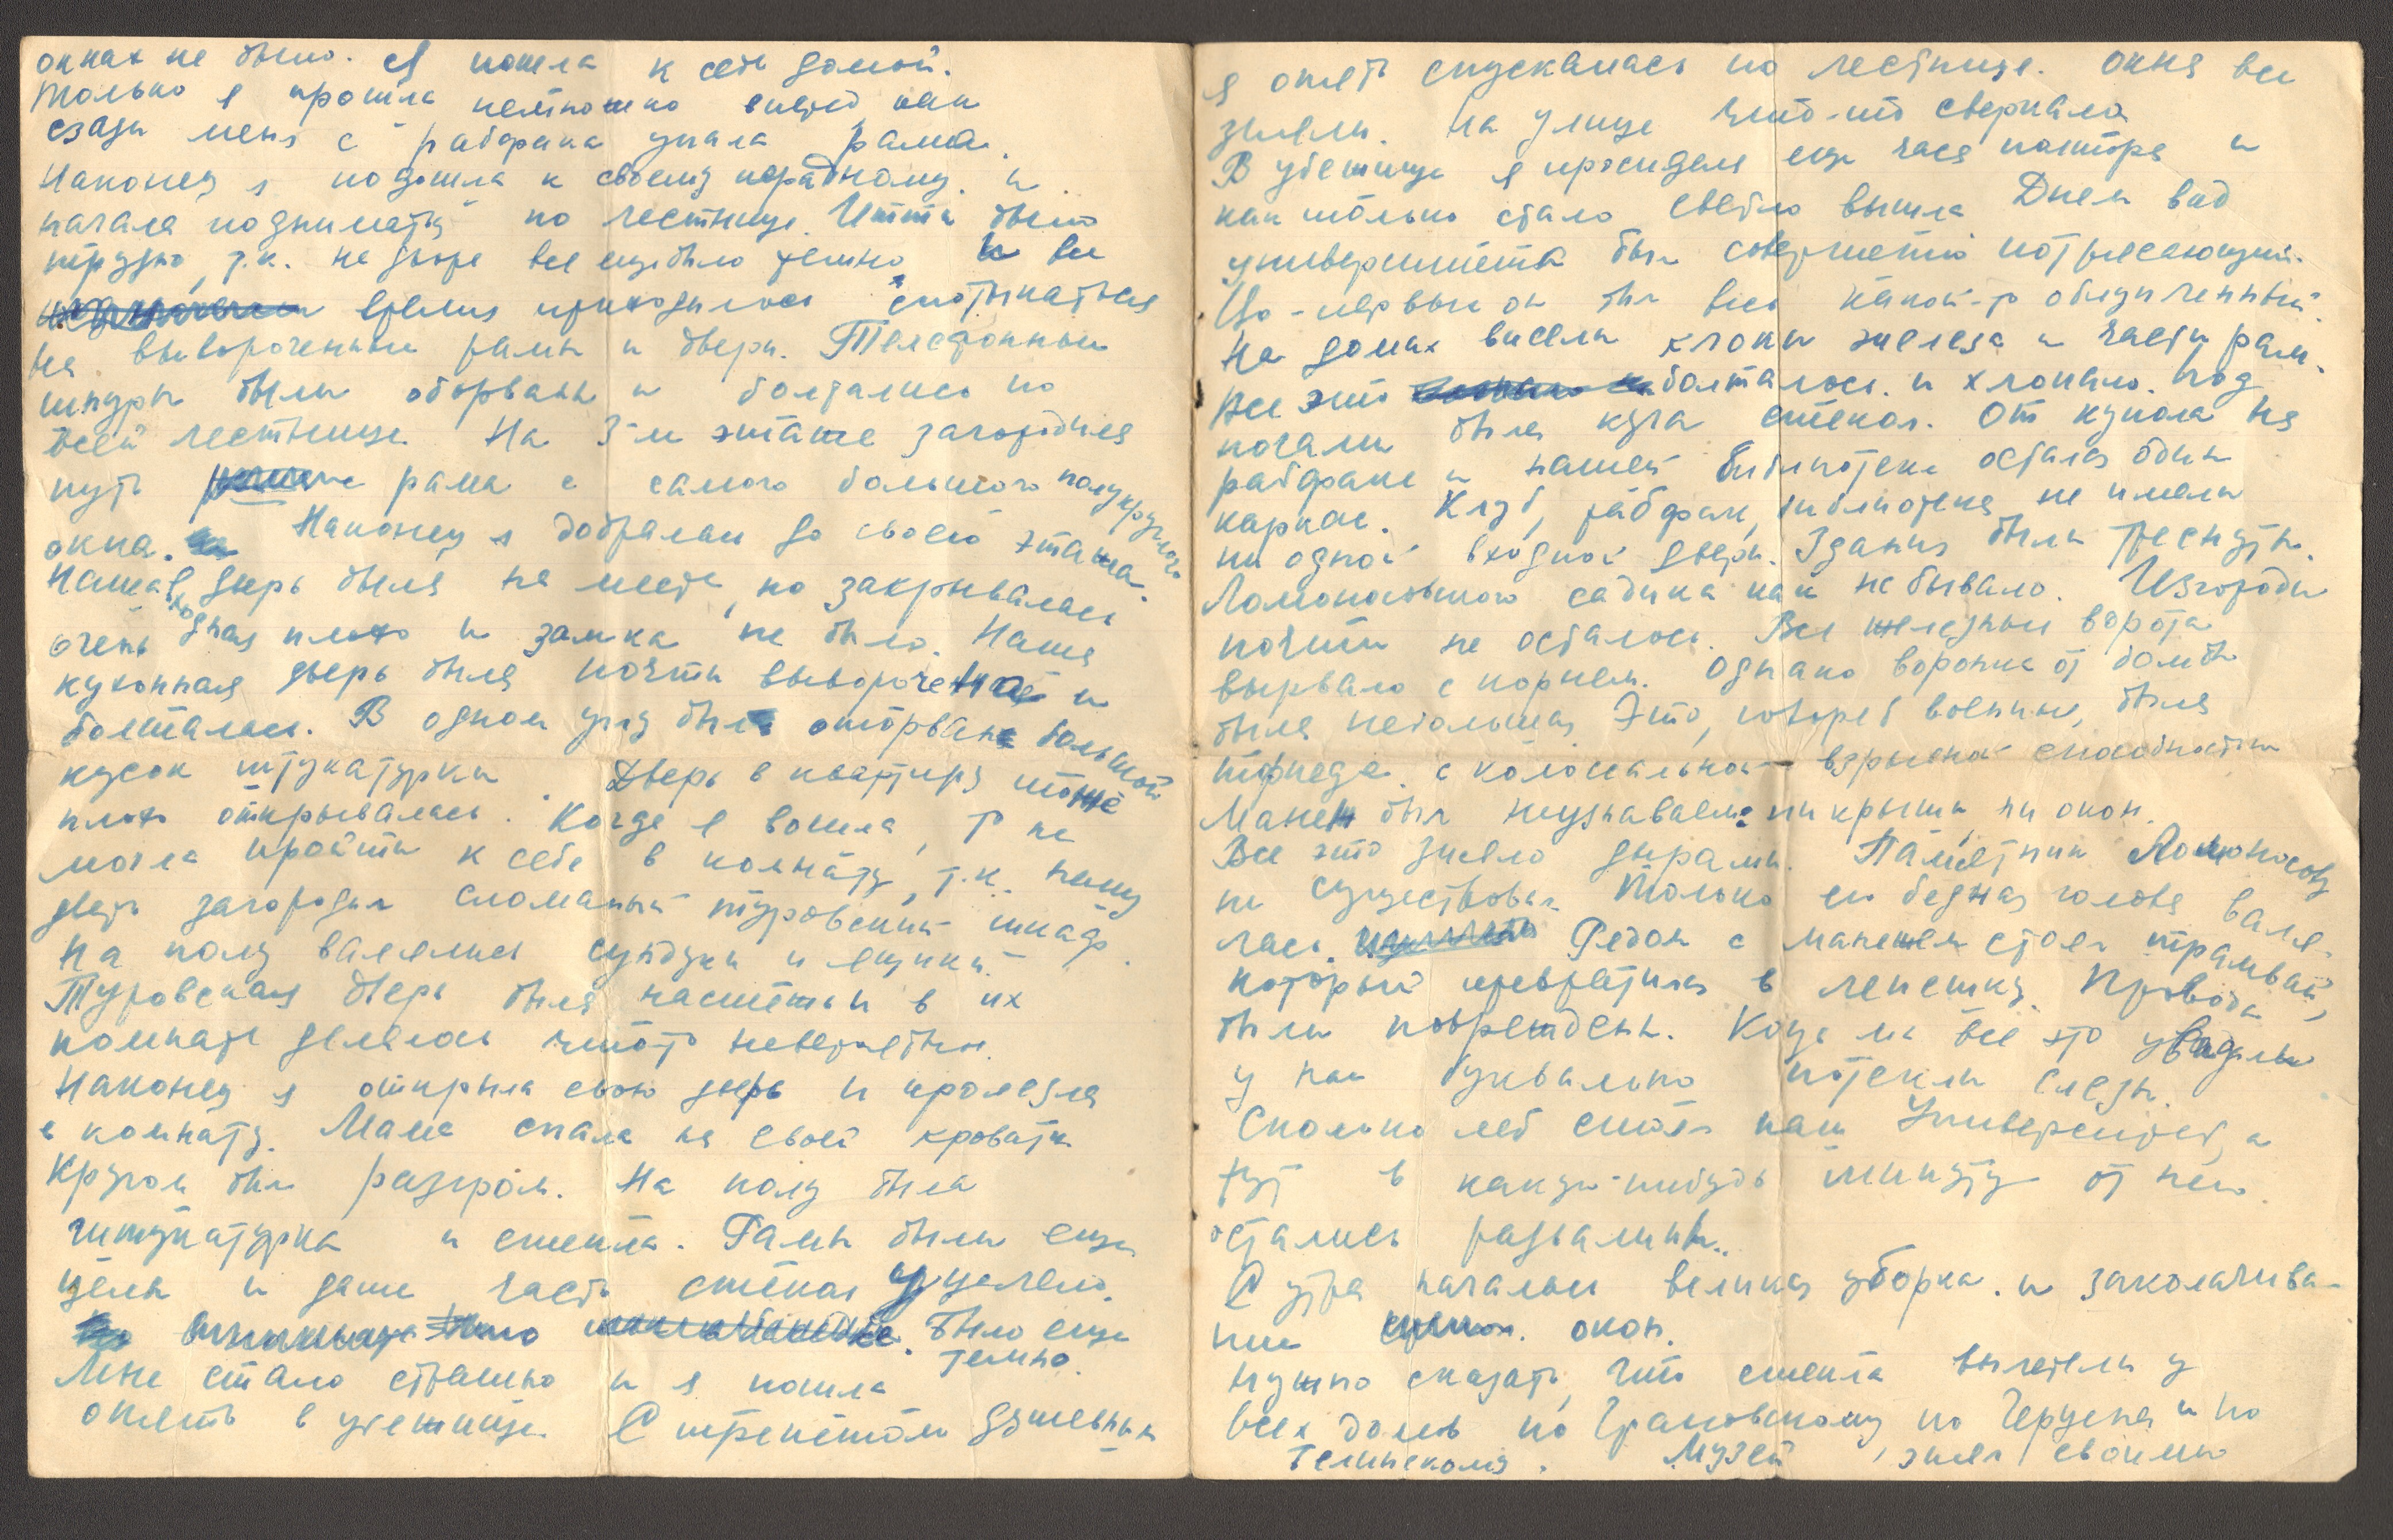 окнах не было. Я пошла к себе домой.
Только я прошла немножко вперед как
сзади меня с рабфака упала рама.
Наконец я подошла к своему парадному. и
начала подниматься по лестнице. Итти было
трудно, т.к. на дворе все еще было темно и все
время приходилось спотыкаться
на вывороченные рамы и двери. Телефонные
шнуры были оборваны и болтались по
всей лестнице. На 3-м этаже загородила
путь рама с самого большого полукруглого
окна. Наконец я добралась до своего этажа.
Наша входная дверь была на месте, но закрывалась
очень плохо и замка не было. Наша
кухонная дверь была почти выворочена и
болталась. В одном углу был оторван большой
кусок штукатурки. Дверь в квартиру тоже
плохо открывалась. Когда я вошла, то не
могла пройти к себе в комнату, т.к. нашу
дверь загородил сломаный туровский шкаф.
На полу валялись сундуки и ящики.
Туровская дверь была настежь и в их
комнате делалось что-то невероятное.
Наконец я открыла свою дверь и пролезла
в комнату. Мама спала на своей кровати
Кругом был разгром. На полу была
штукатурка и стекла. Рамы были еще
целы и даже часть стекол уцелело.
Было еще темно.
Мне стало страшно и я пошла
опять в убежище. С трепетом душевным
я опять спускалась по лестнице. Окна все
зияли. На улице что-то сверкало
В убежище я просидела еще часа полтора и
как только стало светло вышла Днем вид
университета был совершенно потрясающий.
Во-первых он был весь какой-то облупленный.
На домах висели клоки железа и части рам.
Все это болталось и хлопало. Под
ногами была куча стекол. От купола на
рабфаке и нашей библиотеки остался один
каркас. Клуб, рабфак, библиотека не имели
ни одной входной двери. Здания были треснуты.
Ломоносовского садика как не бывало. Изгороди
почти не осталось. Все железные ворота
вырвало с корнем. Однако воронка от бомбы
была небольшая. Это, говорят военные, была
торпеда с колоссальной взрывной способностью
Манеж был неузнаваем: ни крыши, ни окон.
Все это зияло дырами. Памятник Ломоносову
не существовал Только его бедная голова валя-
лась. Рядом с манежем стоял трамвай,
который превратился в лепешку. Провода
были повреждены. Когда мы все это увидали
у нас буквально потекли слезы.
Сколько лет стоял наш Университет, а
тут в какую-нибудь минуту от него
остались развалины..
С утра началась великая уборка и заколачива-
ние окон.
Нужно сказать, что стекла вылетели у
всех домов по Грановскому по Герцена и по
. Музей зиял своими